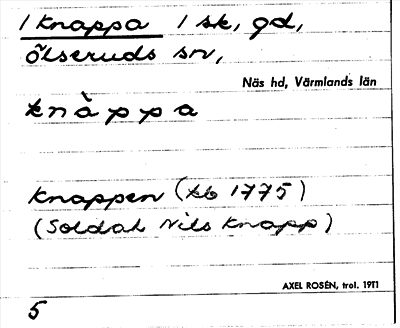 1 Knappa 1 sk, gd,
Ölseruds sn,
Näs hd, Värmlands län
knàppa
Knappen (kb 1775)
(Soldat Nils Knapp)
AXEL ROSÉN, trol. 1911
5